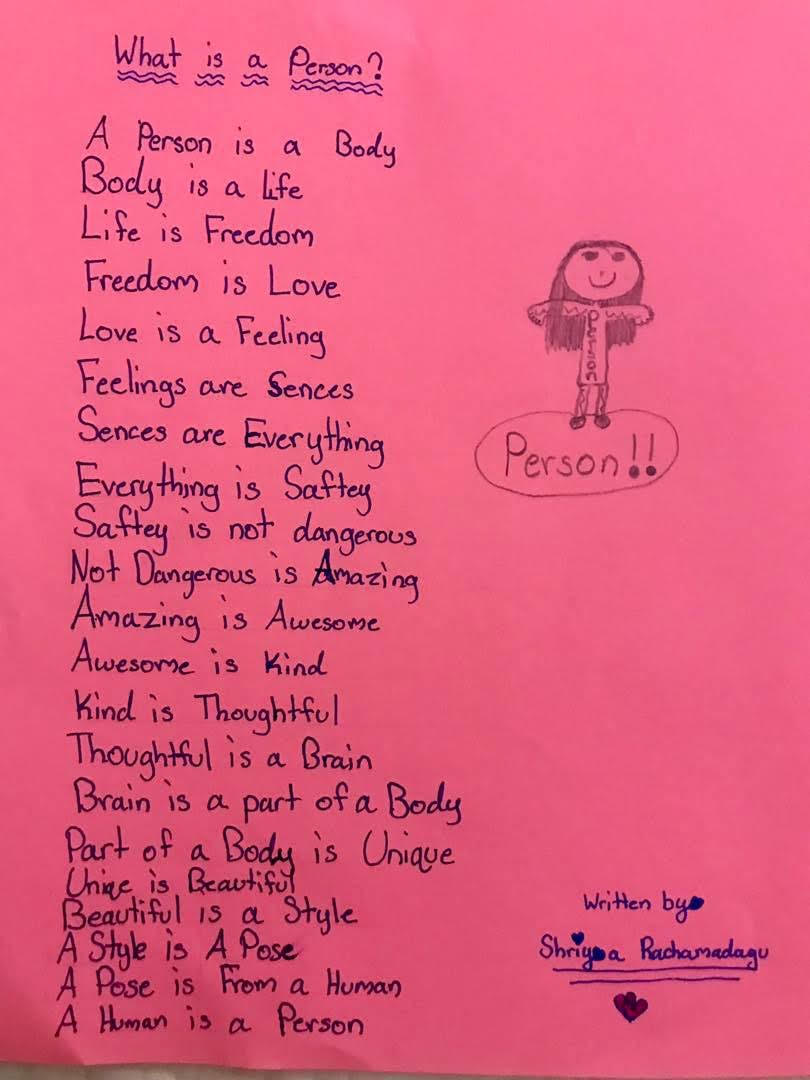 What is a Person?
A Person is a Body
Body is a Life
Life is Freedom
Freedom is Love
Love is a Feeling
Feelings are Sences
Sences are Everything
Everything is Saftey
Saftey is not dangerous
Not Dangerous is Amazing
Amazing is Awesome
Awesome is Kind
Kind is Thoughtful
Thoughtful is a Brain
Brain is a part of a Body
Part of a Body is Unique
Uniqe is Beautiful
Beautiful is a Style
A Style is A Pose
A Pose is From a Human
A Human is a Person
Person
Person!!
Written by
Shriya Rachamadagu